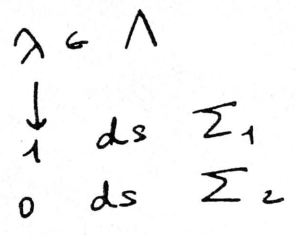 λ ∈ Λ
↓
1 ds Σ₁
0 ds Σ₂